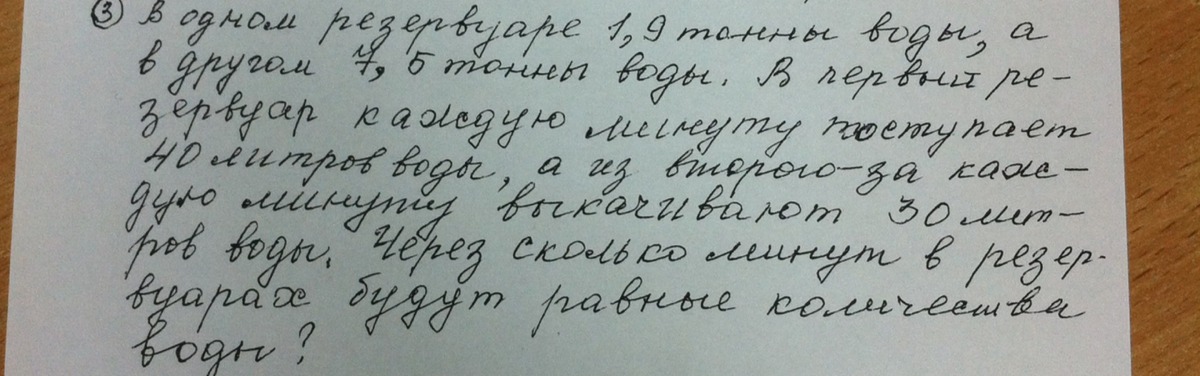 ③ В одном резервуаре 1,9 тонны воды, а
в другом 7,5 тонны воды. В первый ре-
зервуар каждую минуту поступает
40 литров воды, а из второго-за каж-
дую минуту выкачивают 30 лит-
ров воды. Через сколько минут в резер-
вуарах будут равные количества
воды?